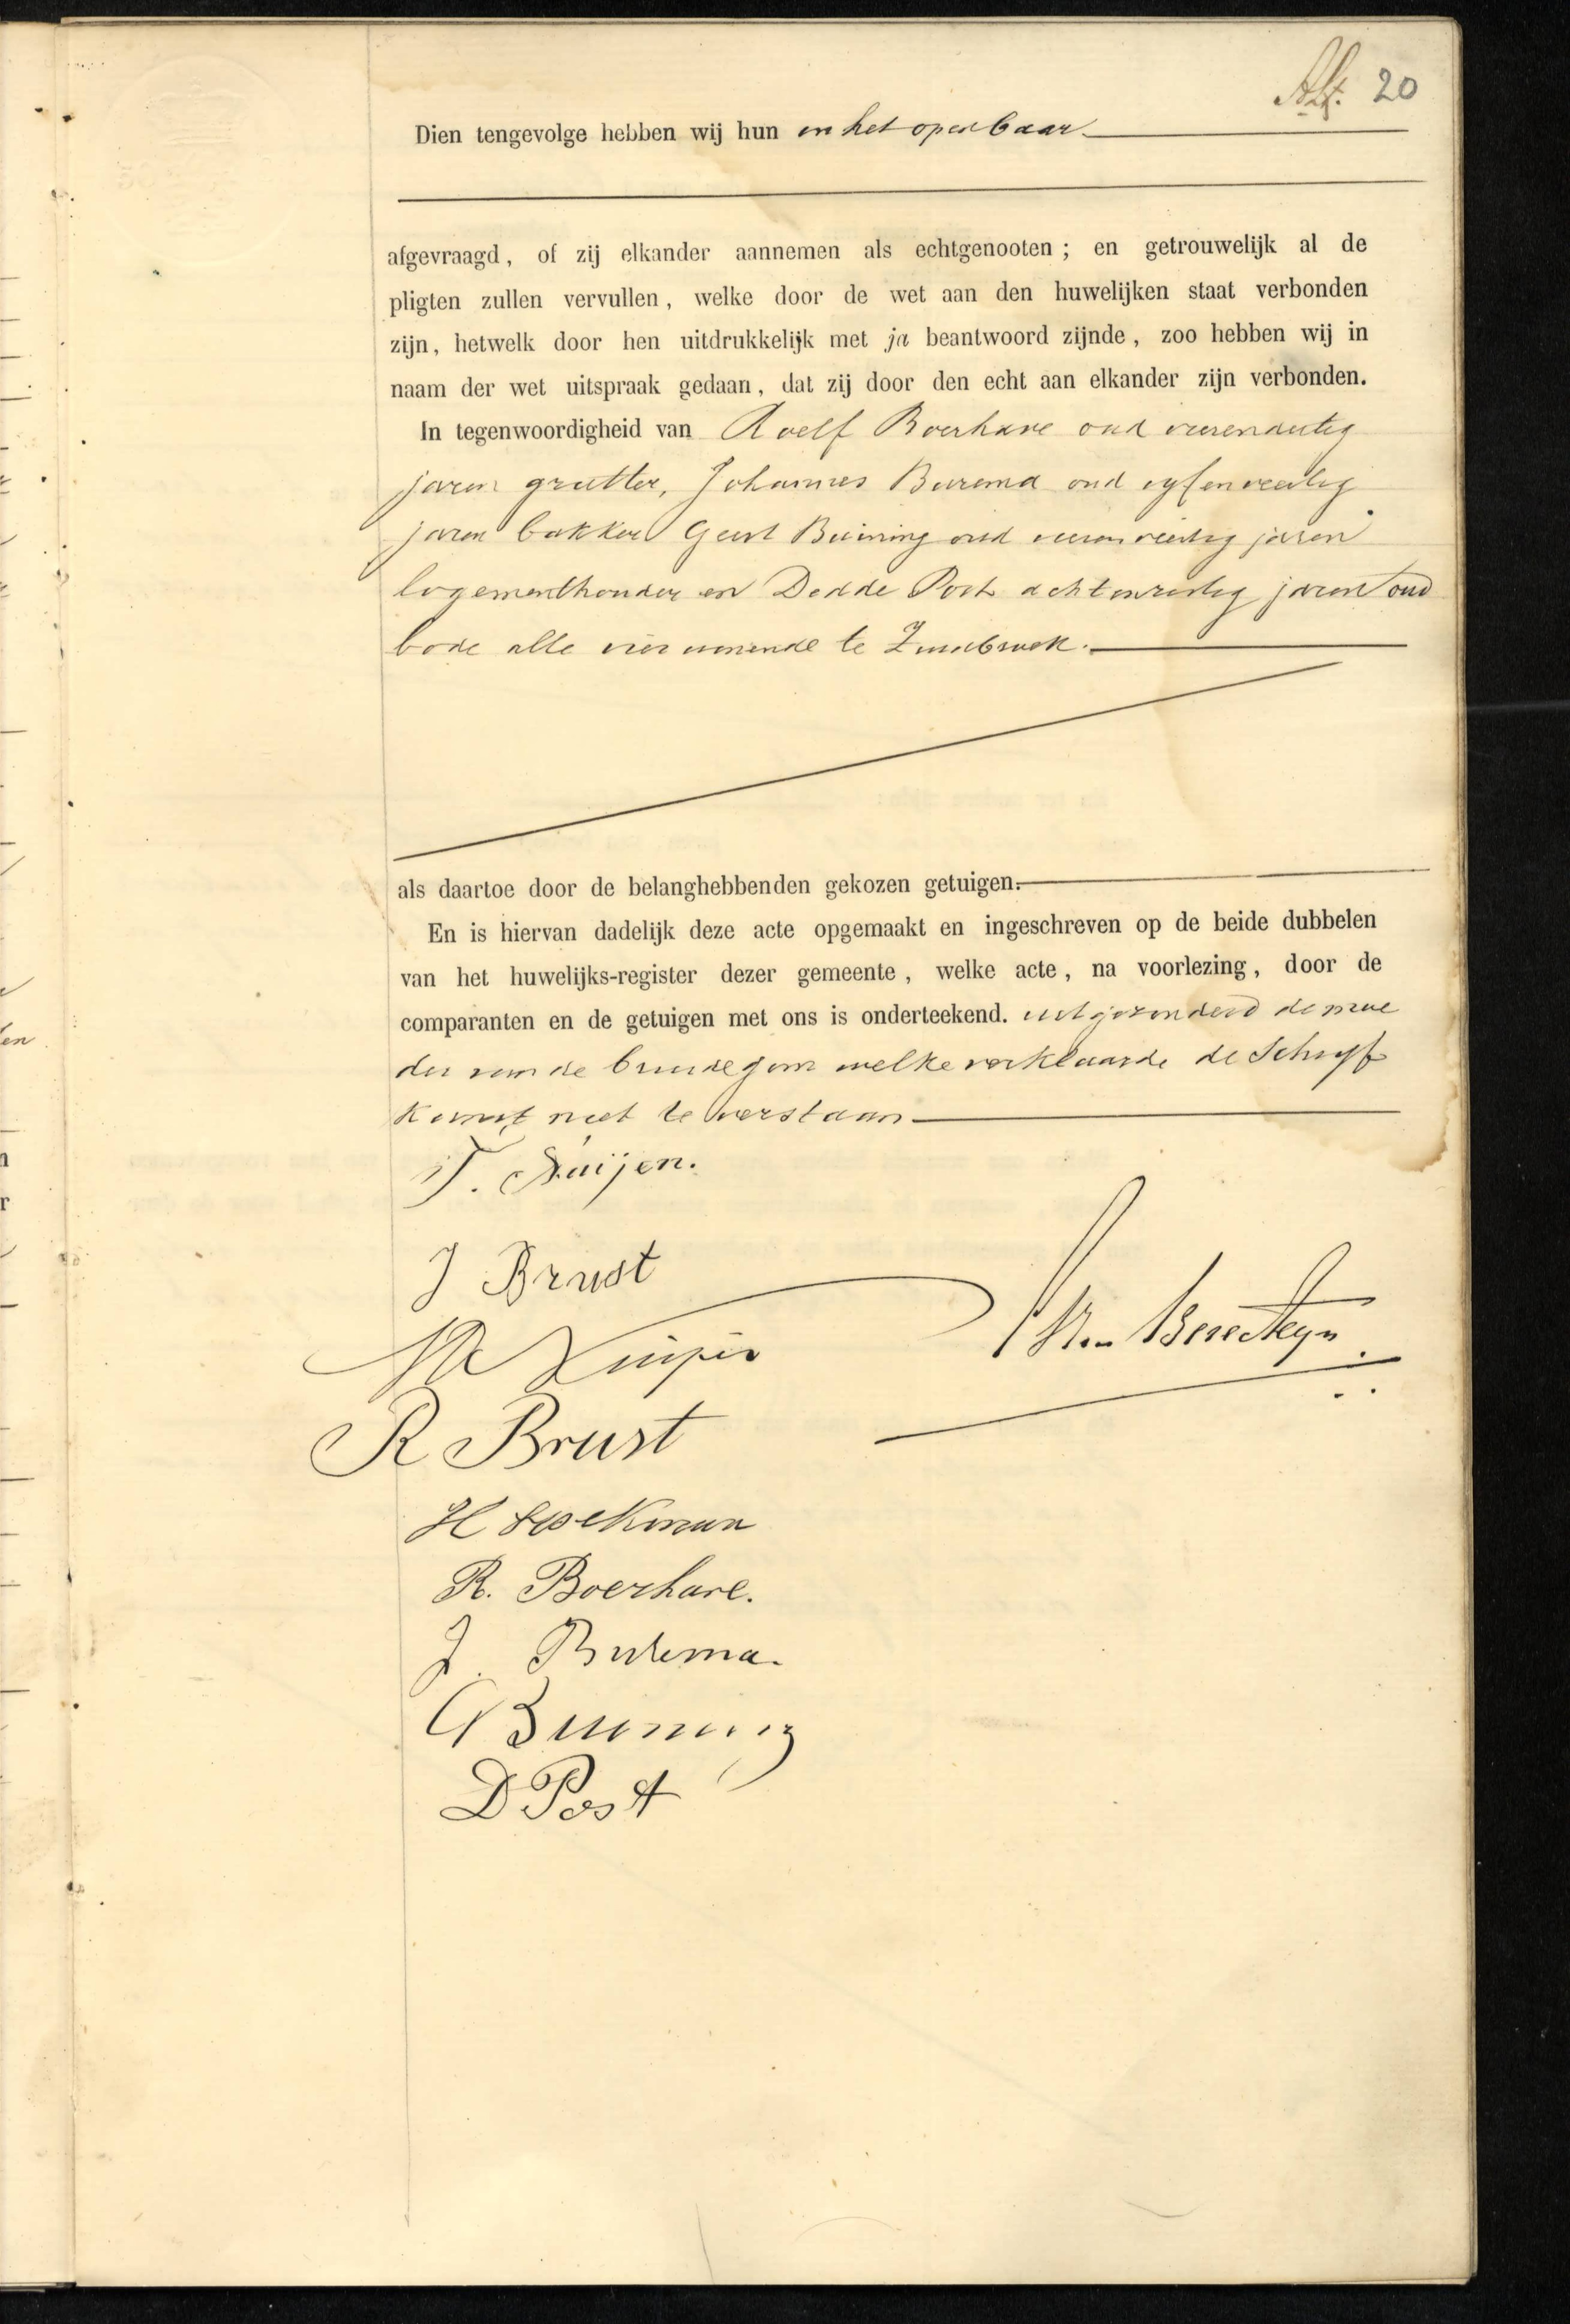 20
Dien tengevolge hebben wij hun in het openbaar
afgevraagd, of zij elkander aannemen als echtgenooten; en getrouwelijk al de
pligten zullen vervullen, welke door de wet aan den huwelijken staat verbonden
zijn, hetwelk door hen uitdrukkelijk met ja beantwoord zijnde, zoo hebben wij in
naam der wet uitspraak gedaan, dat zij door den echt aan elkander zijn verbonden.
In tegenwoordigheid van Roelf Boerhave oud vierendertig
jaren grutter, Johannes Burema oud vyfenveertig
jaren bakker Geert Buining oud vierenveertig jaren
logementhouder en Dedde Post achtenveertig jaren oud
bode alle vier wonende te Zuidbroek.
als daartoe door de belanghebbenden gekozen getuigen.
En is hiervan dadelijk deze acte opgemaakt en ingeschreven op de beide dubbelen
van het huwelijks-register dezer gemeente, welke acte, na voorlezing, door de
comparanten en de getuigen met ons is onderteekend. uitgezonderd de moe
der van de bruidegom welke verklaarde de Schryf
kunst niet te verstaan
J Brust
Kuiper
R Brust
H
R. Boerhave.
J. Burema.
G Buining
D Post